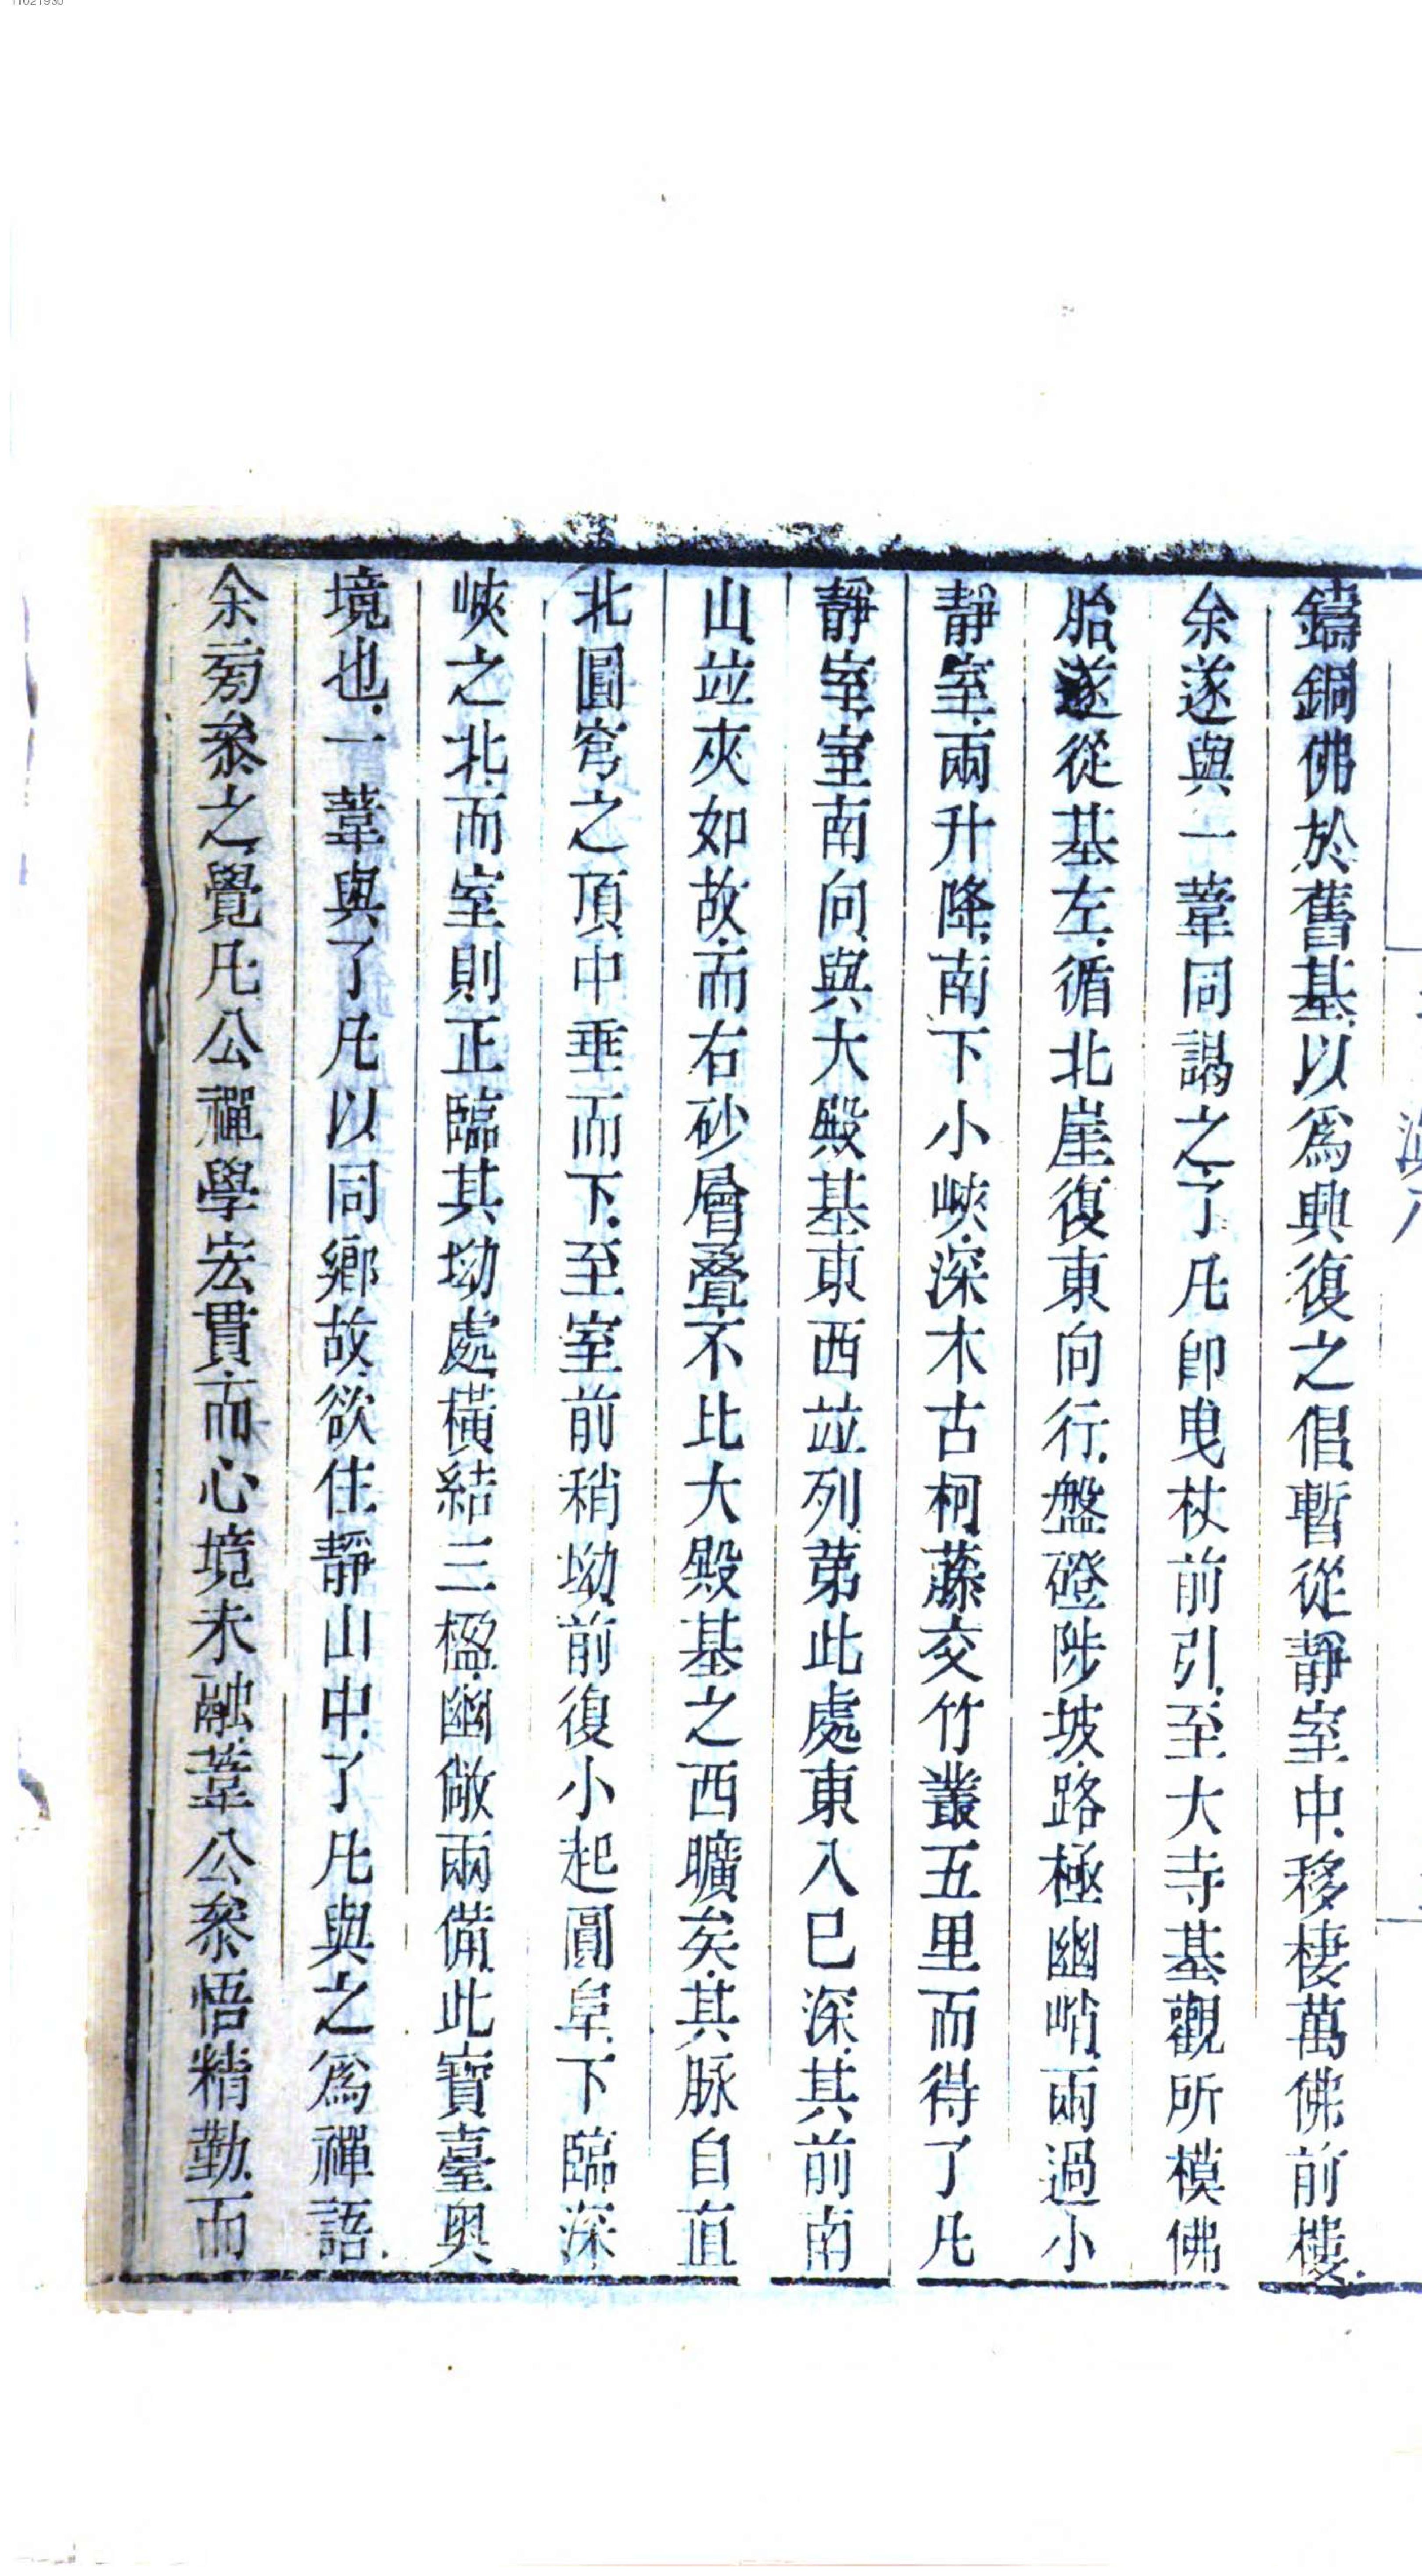 11621930
鑄銅佛於舊基以爲興復之倡暫從靜室中移棲萬佛前樓
余遂與一葦同謁之了凡卽曳杖前引至大寺基觀所模佛
胎遂從基左循北崖復東向行盤磴陟坡路極幽峭兩過小
靜室兩升降南下小峽深木古柯藤交竹叢五里而得了凡
靜室室南向與大殿基東西竝列第此處東入已深其前南
山竝夾如故而右砂層疊不比大殿基之西曠矣其脉自直
北圓穹之頂中垂而下至室前稍坳前復小起圓阜下臨深
峽之北而室則正臨其坳處橫結三楹幽敞兩備此寶臺奥
境也一葦與了凡以同鄉故欲住靜山中了凡與之爲禪語
余旁叅之覺凡公禪學宏貫而心境未融葦公叅悟精勤而